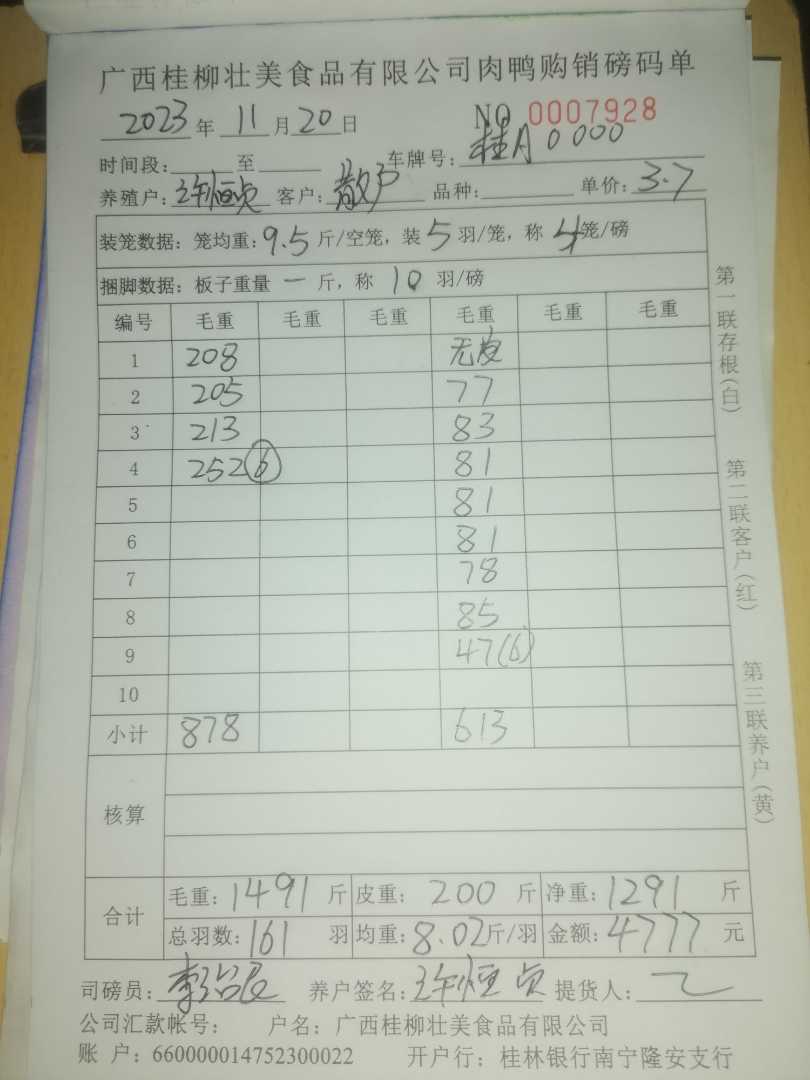 广西桂柳壮美食品有限公司肉鸭购销磅码单
2023年11月20日 NO 0007928
时间段: 至 车牌号: 桂A0000
养殖户: 许恒贞 客户: 散户 品种: 单价: 3.7
装笼数据: 笼均重: 9.5斤/空笼, 装5羽/笼, 称4笼/磅
捆脚数据: 板子重量 一 斤, 称 10 羽/磅
编号 毛重 毛重 毛重 毛重 毛重 毛重
1 208 无皮
2 205 77
3 213 83
4 252⑥ 81
5 81
6 81
7 78
8 85
9 47(6)
10
小计 878 613
核算
合计 毛重: 1491斤 皮重: 200斤 净重: 1291斤
总羽数: 161羽 均重: 8.02斤/羽 金额: 4777元
司磅员: 养户签名: 许恒贞 提货人:
公司汇款帐号: 户名: 广西桂柳壮美食品有限公司
账 户: 660000014752300022 开户行: 桂林银行南宁隆安支行
第一联存根(白) 第二联客户(红) 第三联养户(黄)